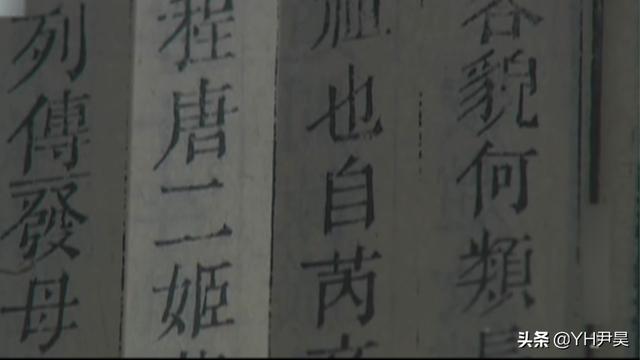 容貌何類
也自芮
程唐二姬
列傳發母
头条 @YH尹昊